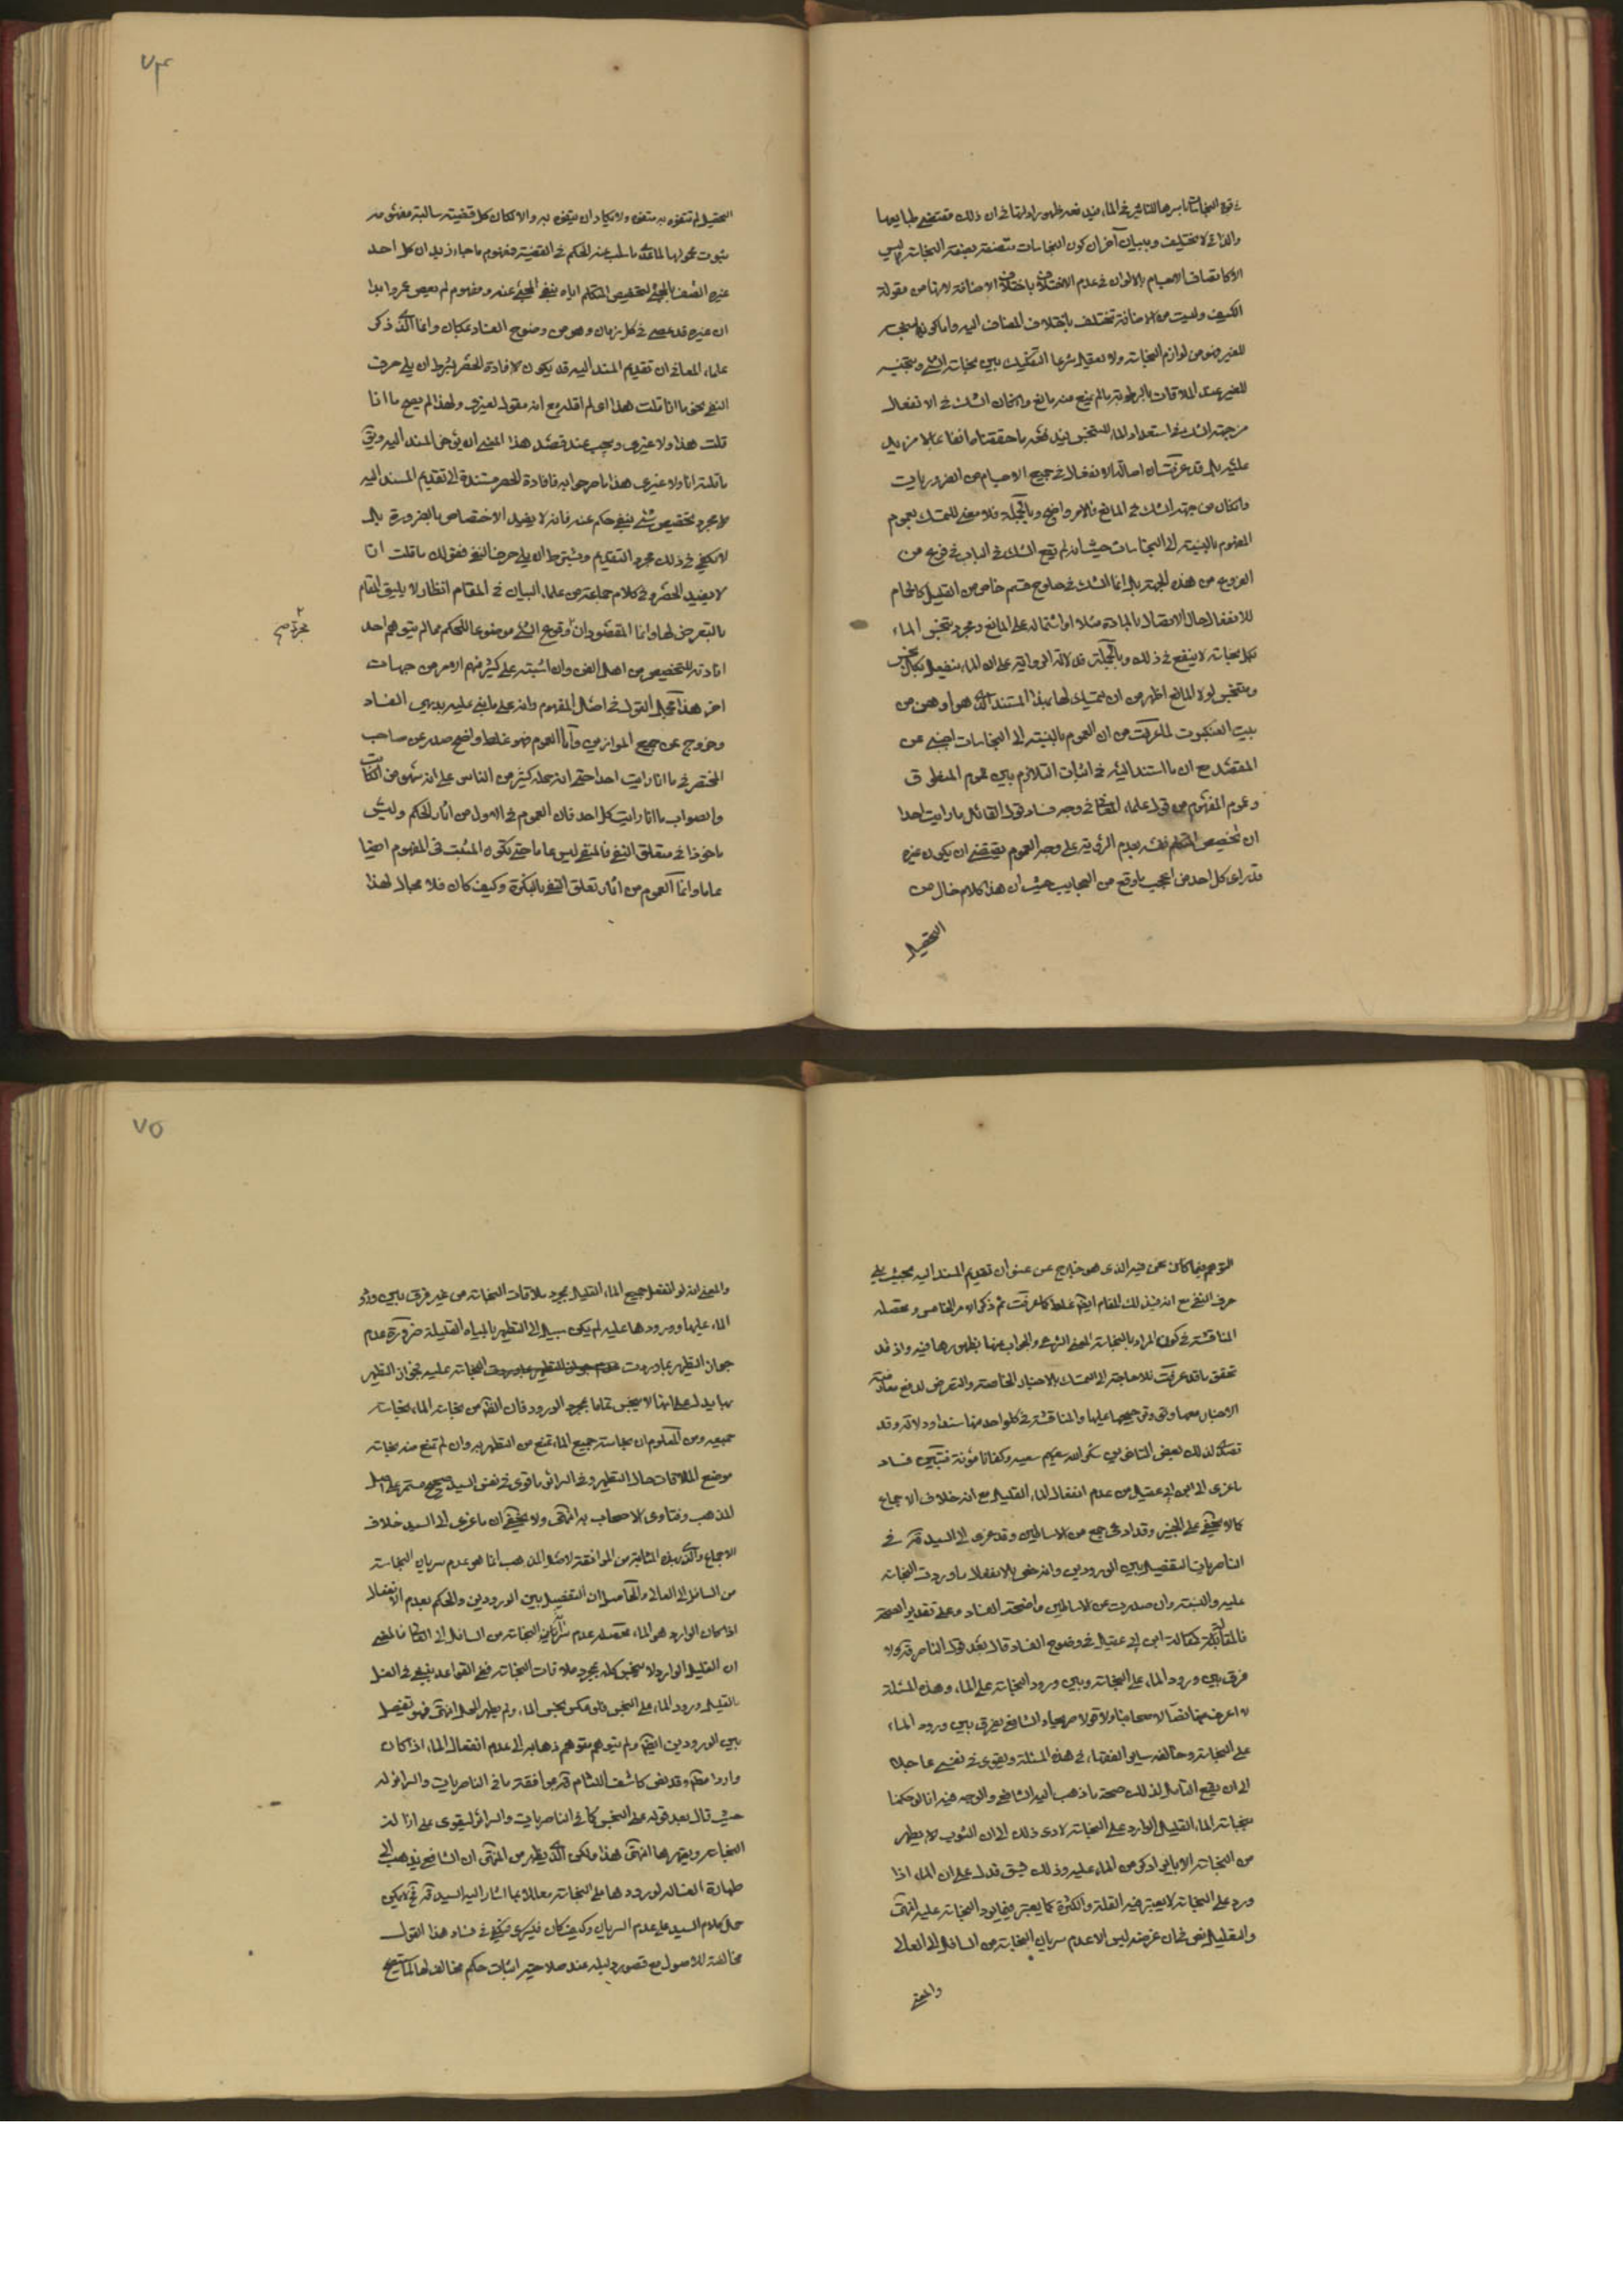 والذاتي لا يختلف وببيان آخر ان كون النجاسات متصفة بصفة النجاسة ليس
الا كاتصاف الاجسام بالالوان في عدم الاختلاف باختلاف الاضافة لانها من مقولة
الكيف وليست من الاضافة تختلف باختلاف المضاف اليه واما كونها منجسة
للغير فهو من لوازم النجاسة ولا يعقل شرعا التفكيك بين نجاسة الشئ وتنجيسه
للغير عند الملاقات بالرطوبة ما لم يمنع منه مانع وان كان الشك في الانفعال
من جهة الشك في استعداد الماء للتنجس ففيه ما حققناه انفا بما لا مزيد
عليه بل قد عرفت ان اصالة الانفعال في جميع الاجسام من الضروريات
وان كان من جهة الشك في المانع فالامر واضح وبالجملة فلا معنى للتمسك بعموم
المفهوم بالنسبة الى النجاسات حيث انه لم يقع الشك في الباب في فرع من
الفروع من هذه الجهة بل انما الشك في خروج قسم خاص من القليل كالحمام
للانفعال حال الاتصال بالمادة مثلا او اشتماله على المانع ومجرد تنجس الماء
بكل نجاسة لا ينفع في ذلك وبالجملة فدلالة الرواية على ان الماء ينفعل بكل نجس
ومتنجس لولا المانع اظهر من ان يتمسك لها بهذا المستند الذي هو اوهن من
بيت العنكبوت لما عرفت من ان العموم بالنسبة الى النجاسات اجنبي عن
المقصد مع ان ما استند اليه في اثبات التلازم بين عموم المنطوق
وعموم المفهوم من قول علماء المعاني في وجه فساد قول القائل ما انا رايت احدا
ان تخصيص المتكلم نفسه بعدم الرؤية على وجه العموم يقتضي ان يكون غيره
قد راى كل احد من اعجب ما وقع من العجايب حيث ان هذا كلام خال من
التحصيل
٧٤
التحصيل لم يتفوه به متفوه ولا يكاد ان يتفوه به والا لكان كل قضية سالبة مفهومه
ثبوت محمولها لما عدا ما سلب عنه الحكم في القضية فمفهوم ما جاء زيد ان كل احد
ان غيره قد عصى في كل زمان وهو من وضوح الفساد بمكان وانما الذي ذكره
علماء المعاني ان تقديم المسند اليه قد يكون لافادة الحصر بشرط ان يلي حرف
النفي نحو ما انا قلت هذا اى لم اقله مع انه مقول لغيري ولهذا لم يصح ما انا
قلت هذا ولا غيري ويجب عند قصد هذا المعنى ان يؤخر المسند اليه ويق
ما قلته انا ولا غيري هذا ما صرحوا به فافادة الحصر مستندة الى تقديم المسند اليه
لا مجرد تخصيص شئ بنفي حكم عنه فانه لا يفيد الاختصاص بالضرورة بل
لا يكفي في ذلك مجرد التقديم ويشترط ان يلي حرف النفي فقولك ما قلت انا
لا يفيد الحصر وفي كلام جماعة من علماء البيان في المقام انظار لا يليق المقام
بالتعرض لها وانما المقصود ان وقوع الشئ موضوعا للحكم مما لم يتوهم احد
افادته للتخصيص من اهل الفن وان اشتبه على كثير منهم الامر من جهات
اخر هذا مجمل القول في امثال المفهوم وانه على ما بنى عليه بديهي الفساد
وخروج عن جميع الموازين واما العموم فهو غلط واضح صدر عن صاحب
المختصر في ما انا رايت احدا حتى انه حمله كثير من الناس على انه سهو من الكتاب
والصواب ما انا رايت كل احد فان العموم في الاول من اثار الحكم وليس
ماخوذا في متعلق النفي فالمنفي ليس عاما حتى يكون المثبت في المفهوم ايضا
عاما وانما العموم من اثار تعلق النفي بالنكرة وكيف كان فلا مجال لهذا
التوهم فيما كان نحن فيه الذي هو خارج عن عنوان تقديم المسند اليه بحيث يلي
حرف النفي مع انه في ذلك المقام ايضا غلط كما عرفت ثم ذكر الامر الخامس ومحصله
المناقشة في كون المراد بالنجاسة المعنى الشرعي والجواب عنها بظهورها فيه واذ قد
تحقق ما قد عرفت فلا حاجة الى التمسك بالاخبار الخاصة والتعرض لدفع معارضة
الاخبار معها وترجيحها عليها والمناقشة في كل واحد منها سندا ودلالة وقد
تصدى لذلك بعض المتاخرين شكر الله سعيهم وكفانا مؤنته فتبين فساد
ما عزى الى ابن ابي عقيل من عدم انفعال الماء القليل مع انه خلاف الاجماع
كما لا يخفى على الخبير وقد ادعى جمع من الاساطين وقد عزى الى السيد قده في
الناصريات التفصيل بين الورودين وانه خص الانفعال بما وردت النجاسة
عليه والنسبة وان صدرت عن الاساطين واضحة الفساد وعلى تقدير الصحة
فالمقالة كمقالة ابن ابي عقيل في وضوح الفساد قال بعد قول الناصر قده ولا
فرق بين ورود الماء على النجاسة وبين ورود النجاسة على الماء وهذه المسئلة
لا اعرف فيها نصا لاصحابنا ولا قولا صريحا والشافعي يفرق بين ورود الماء
على النجاسة وخالفه سائر الفقهاء في هذه المسئلة ويقوى في نفسي عاجلا
الى ان يقع التامل لذلك صحة ما ذهب اليه الشافعي والوجه فيه انا لو حكمنا
بنجاسة الماء القليل الوارد على النجاسة لادى ذلك الى ان الثوب لا يطهر
من النجاسة الا بايراد كر من الماء عليه وذلك يشق فدل على ان الماء اذا
ورد على النجاسة لا يعتبر فيه القلة والكثرة كما يعتبر فيما يرد النجاسة عليه انتهى
والتعليل نص في ان غرضه ليس الا عدم سريان النجاسة من السافل الى العالي
والمعنى
٧٥
والمعنى انه لو انفعل جميع الماء القليل بمجرد ملاقات النجاسة من غير فرق بين ورود
الماء عليها وورودها عليه لم يكن سبيل الى التطهير بالمياه القليلة ضرورة عدم
جواز التطهير بما وردت النجاسة عليه فجواز التطهير
بها يدل على انها لا يتنجس تماما بمجرد الورود فان الظاهر من نجاسة الماء نجاسة
جميعه ومن المعلوم ان نجاسة جميع الماء تمنع من التطهير به وان لم تمنع منه نجاسة
موضع الملاقات حال التطهير وفي السرائر ما قوى في نفس السيد صحيح مستمر على اصل
المذهب وفتاوى الاصحاب به انتهى ولا يخفى ان ما عزى الى السيد خلاف
الاجماع والذي بهذه المثابة من الموافقة لاصل المذهب انما هو عدم سريان النجاسة
من السافل الى العالي والحاصل ان التفصيل بين الورودين والحكم بعدم الانفعال
اذا كان الوارد هو الماء محصله عدم سريان النجاسة من السافل الى العالي فالمعنى
ان القليل الوارد لا يتنجس كله بمجرد ملاقات النجاسة ففي القواعد ينبغي في الغسل
بالقليل ورود الماء على النجس فلو عكس نجس الماء ولم يطهر المحل انتهى فهو تفصيل
بين الورودين ايضا ولم يتوهم متوهم ذهابه الى عدم انفعال الماء اذا كان
واردا وقد نص كاشف اللثام قده موافقة ما في الناصريات والسرائر له
حيث قال بعد قوله على النجس كما في الناصريات والسرائر ليقوى على ازالة
النجاسة ويقهرها انتهى هذا ولكن الذي يظهر من المنتهى ان الشافعي يذهب الى
طهارة الغسالة لورودها على النجاسة معللا بما اشار اليه السيد قده فلا يمكن
حمل كلام السيد على عدم السريان وكيف كان فيكفي في فساد هذا القول
مخالفته للاصول مع قصور دليله عند صلاحية اثبات حكم مخالف لها